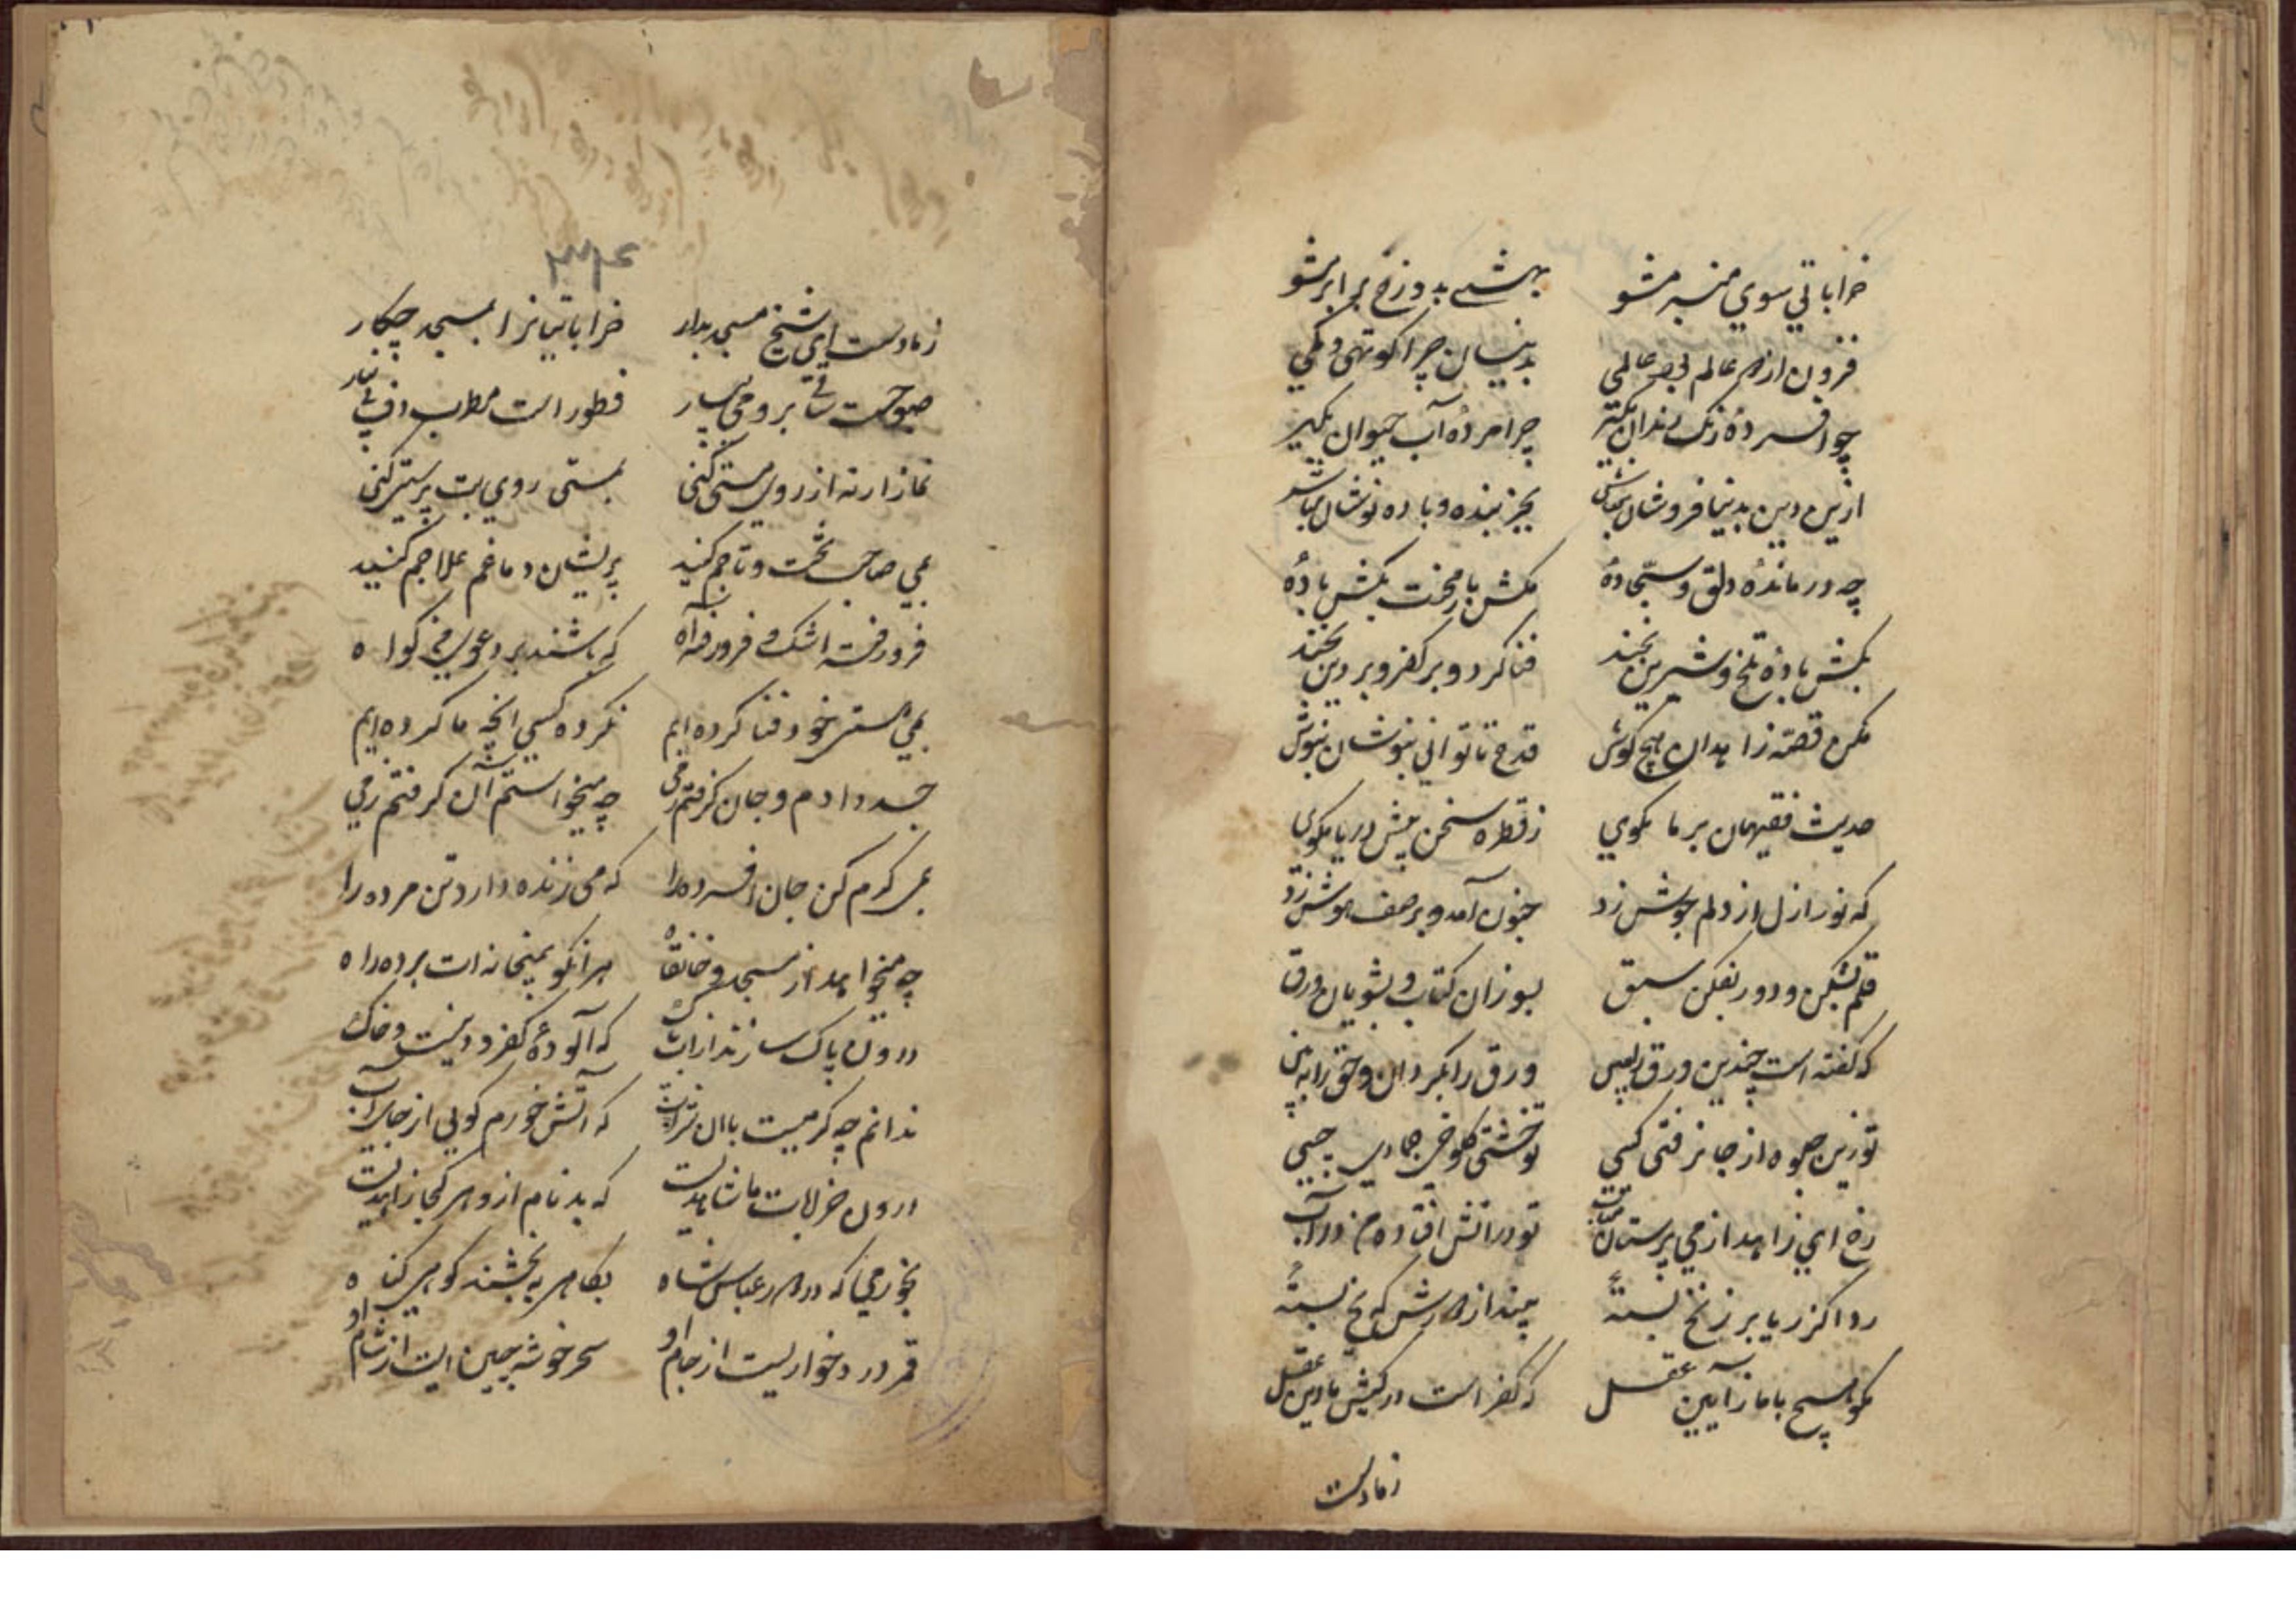 خراباتی سوی منبر مشو بهشتی بدوزخ برابر مشو
فزون از دو عالم تو در عالمی بدینسان چرا کوتهی و کمی
چو افسردهٔ رنگ رندان بگیر چرا مردهٔ آب حیوان بگیر
ازین دین بدنیا فروشان مباش بجز بنده باده نوشان مباش
چه درماندهٔ دلق و سجادهٔ مکش بار محنت بکش بادهٔ
بکش بادهٔ تلخ و شیرین بخند فنا گرد و بر کفر و بر دین بخند
مکن قصه زاهدان هیچ گوش قدح تا توانی بنوشان بنوش
حدیث فقیهان بر ما مگوی ز قطره سخن پیش دریا مگوی
که نور ازل از دلم جوش زد جنون آمد و بر صف هوش زد
قلم بشکن و دور بفکن سبق بسوزان کتاب و بشویان ورق
که گفته است چندین ورق را ببین ورق را بگردان و حق را ببین
تو زین جلوه از جا نرفتی کیی تو خشتی کلوخی جمادی چیی
رخ ای زاهد از می پرستان متاب تو در آتش افتاده من در آب
ردا کز ریا بر زنخ بستهٔ بینداز دورش که یخ بستهٔ
مگو هیچ با ما ز آیین عقل که کفر است در کیش ما دین عقل
زما دست
زما دست ای شیخ مسجد بدار خراباتیانرا بمسجد چکار
صبوحست ساقی برو می بیار فطور است مطرب دف و نی بیار
نماز ار نه از روی مستی کنی بمستی روی بت پرستی کنی
بمی صاحب تخت و تاجم کنید پریشان دماغم علاجم کنید
فرو رفته اشک و فرو رفته آه که باشند بر دعوی می گواه
بمی هستی خود فنا کرده ایم نکرده کسی آنچه ما کرده ایم
جسد دادم و جان گرفتم ز می چه میخواستم آن گرفتم ز می
بمی گرم کن جان افسرده را که می زنده دارد تن مرده را
چه میخواهد از مسجد و خانقاه هر انکو بمیخانه ات برده راه
درون پاک سازند از آب تاک که آلودهٔ کفر و دینست و خاک
ندانم چه گرمیست با آن شراب که آتش خورم گویی از جای آب
درون خرابات ما شاهدیست که بدنام ازو هر کجا زاهدیست
بخور می که در دور عباس شاه بکاهی ببخشند کوهی گناه
قمر درد خواریست از جام او سحر خوشه چین ایست از شام او